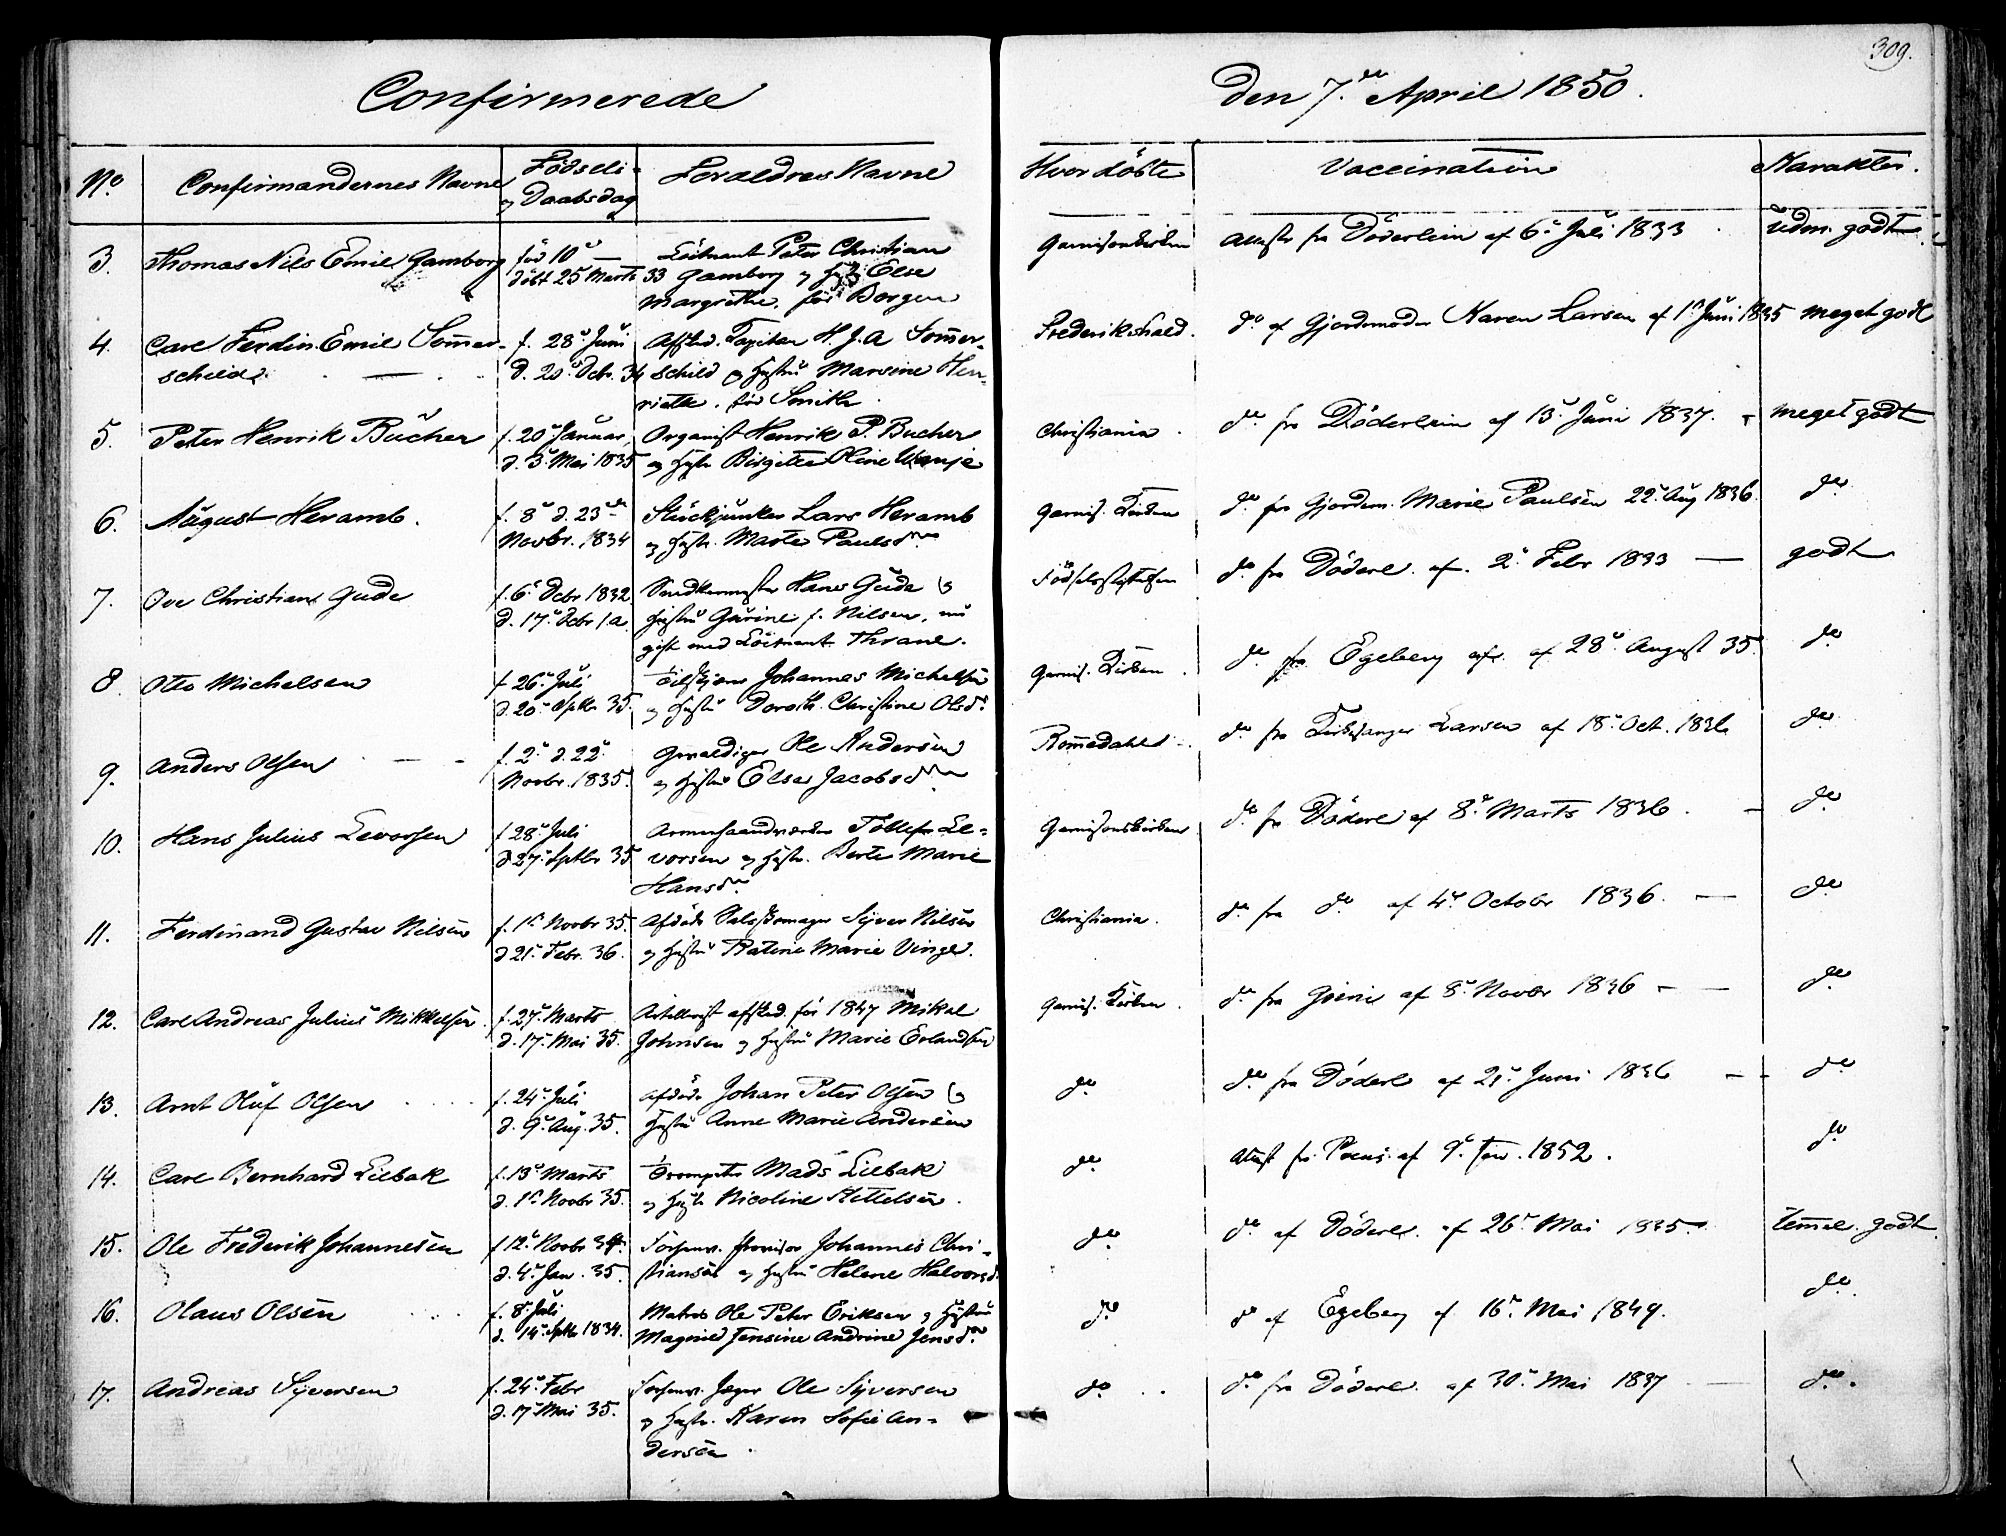 309.
Confirmerede
den 7de April 1850.
No
Confirmandernes Navne
Fødsels-
og Daabsdag
Forældres Navne
Hvor döbte
Vaccination
Karakter.
3. Thomas Nils Emil Gamborg
fød 10de —
döbt 25 Marts 33
Löitnant Peter Christian
Gamborg og Hustr. Else
Margrethe, fød Borgen
Garnisonskirken
Attest fra Döderlein af 6te Juli 1833
Udm. godt
4. Carl Ferdin. Emil Sommer-
schild.
f. 28de Juni
d. 20de Octbr. 34
Afsked. Capitan H. J. A. Sommer-
schild og Hustru Marsine Hen-
riette, fød Smith.
Frederikshald.
do af Gjordemoder Karen Larsen af 1ste Juni 1835
Meget godt
5. Peter Henrik Bücher
f. 20de Januar,
d. 3de Mai 1835
Organist Henrik P. Bucher
og Hustr. Birgitte Oline Wanje
Christiania.
do fra Döderlein af 13de Juni 1837.
Meget godt
6. August Heramb.
f. 8de d. 23de
Novbr. 1834
Stückjunker Lars Heramb
og Hustr. Marte Paulsdr.
Garnis. Kirken
do fra Gjordem. Marie Paulsen 22de Aug 1836.
do
7. Ove Christian Gude
f. 6te Decbr 1832
d. 17de Decbr s.a.
Hans Gude og
Hustru Gurine f. Nilsen, nu
gift med Löitnant Thrane.
Födselsstiftelsen
do fra Döderl. af. 2den Febr 1833 —
godt
8. Otto Michelsen
f 26de Juli
d. 20de Septbr. 35.
Johannes Michelsen
og Hustru Doroth. Christine Olsdr.
Garnis. Kirken.
do fra Egeberg af 28de August 35
do
9. Anders Olsen
f. 2den d. 22de
Novbr. 1835.
Gevaldiger Ole Andersen
og Hustru Else Jacobsdr.
Rommedahl
do fra Kirkesanger Larsen af 18de Oct. 1836
do
10. Hans Julius Levorsen
f 28de Juli
d 27de Septbr 35
Armeehaandværker Tollef Le-
vorsen og Hustr. Berte Marie
Hansdr.
Garnisonskirken
do fra Döderl af 8de Marts 1836.
do
11. Ferdinand Gustav Nilsen
f. 1ste Novbr 35.
d 21de Febr. 36.
Afdöde Syver Nilsen
og Hustru Katrine Marie Vinge.
Christiania.
do fra do af 4de October 1836. —
do
12. Carl Andreas Julius Mikkelsen
f. 27de Marts
d. 17de Mai 35.
Artillerist afsked. før 1847 Mikal
Johnsen og Hustru Marie Erlandsen
Garnis. Kirken.
do fra af 8de Novbr 1836 —
do
13. Arnt Oluf Olsen
f. 24de Juli
d. 9de Aug. 35.
Afdöde Johan Peter Olsen og
Hustru Anne Marie Andersen
do
do fra Döderl af 21de Juni 1836
do
14. Carl Bernhard Lilbak
f. 13de Marts
d. 1ste Novbr 35.
Trompeter Mads Lilbak
og Hustr. Nicoline
do
Attest fra af 9de Jan. 1852.
do
15. Ole Frederik Johannesen
f 12te Novbr 34.
d. 4de Jan. 35.
Johannes Chri-
stiansen og Hustru Helene Halvorsd.
do
do af Döderl. af 26de Mai 1835
Temmel. godt
16. Olaus Olsen
f. 8de Juli
d. 14de Septbr 1834.
Matros Ole Peter Eriksen og Hustru
Magnild Jensine Andrine Jensdr.
do
do af Egeberg af 16de Mai 1849.
do
17. Andreas Syversen
f. 24de Febr
d. 17de Mai 35.
Jæger Ole Syversen
og Hustr. Karen Sofie An-
dersen.
do
do fra Döderl. af 30te Mai 1837
do